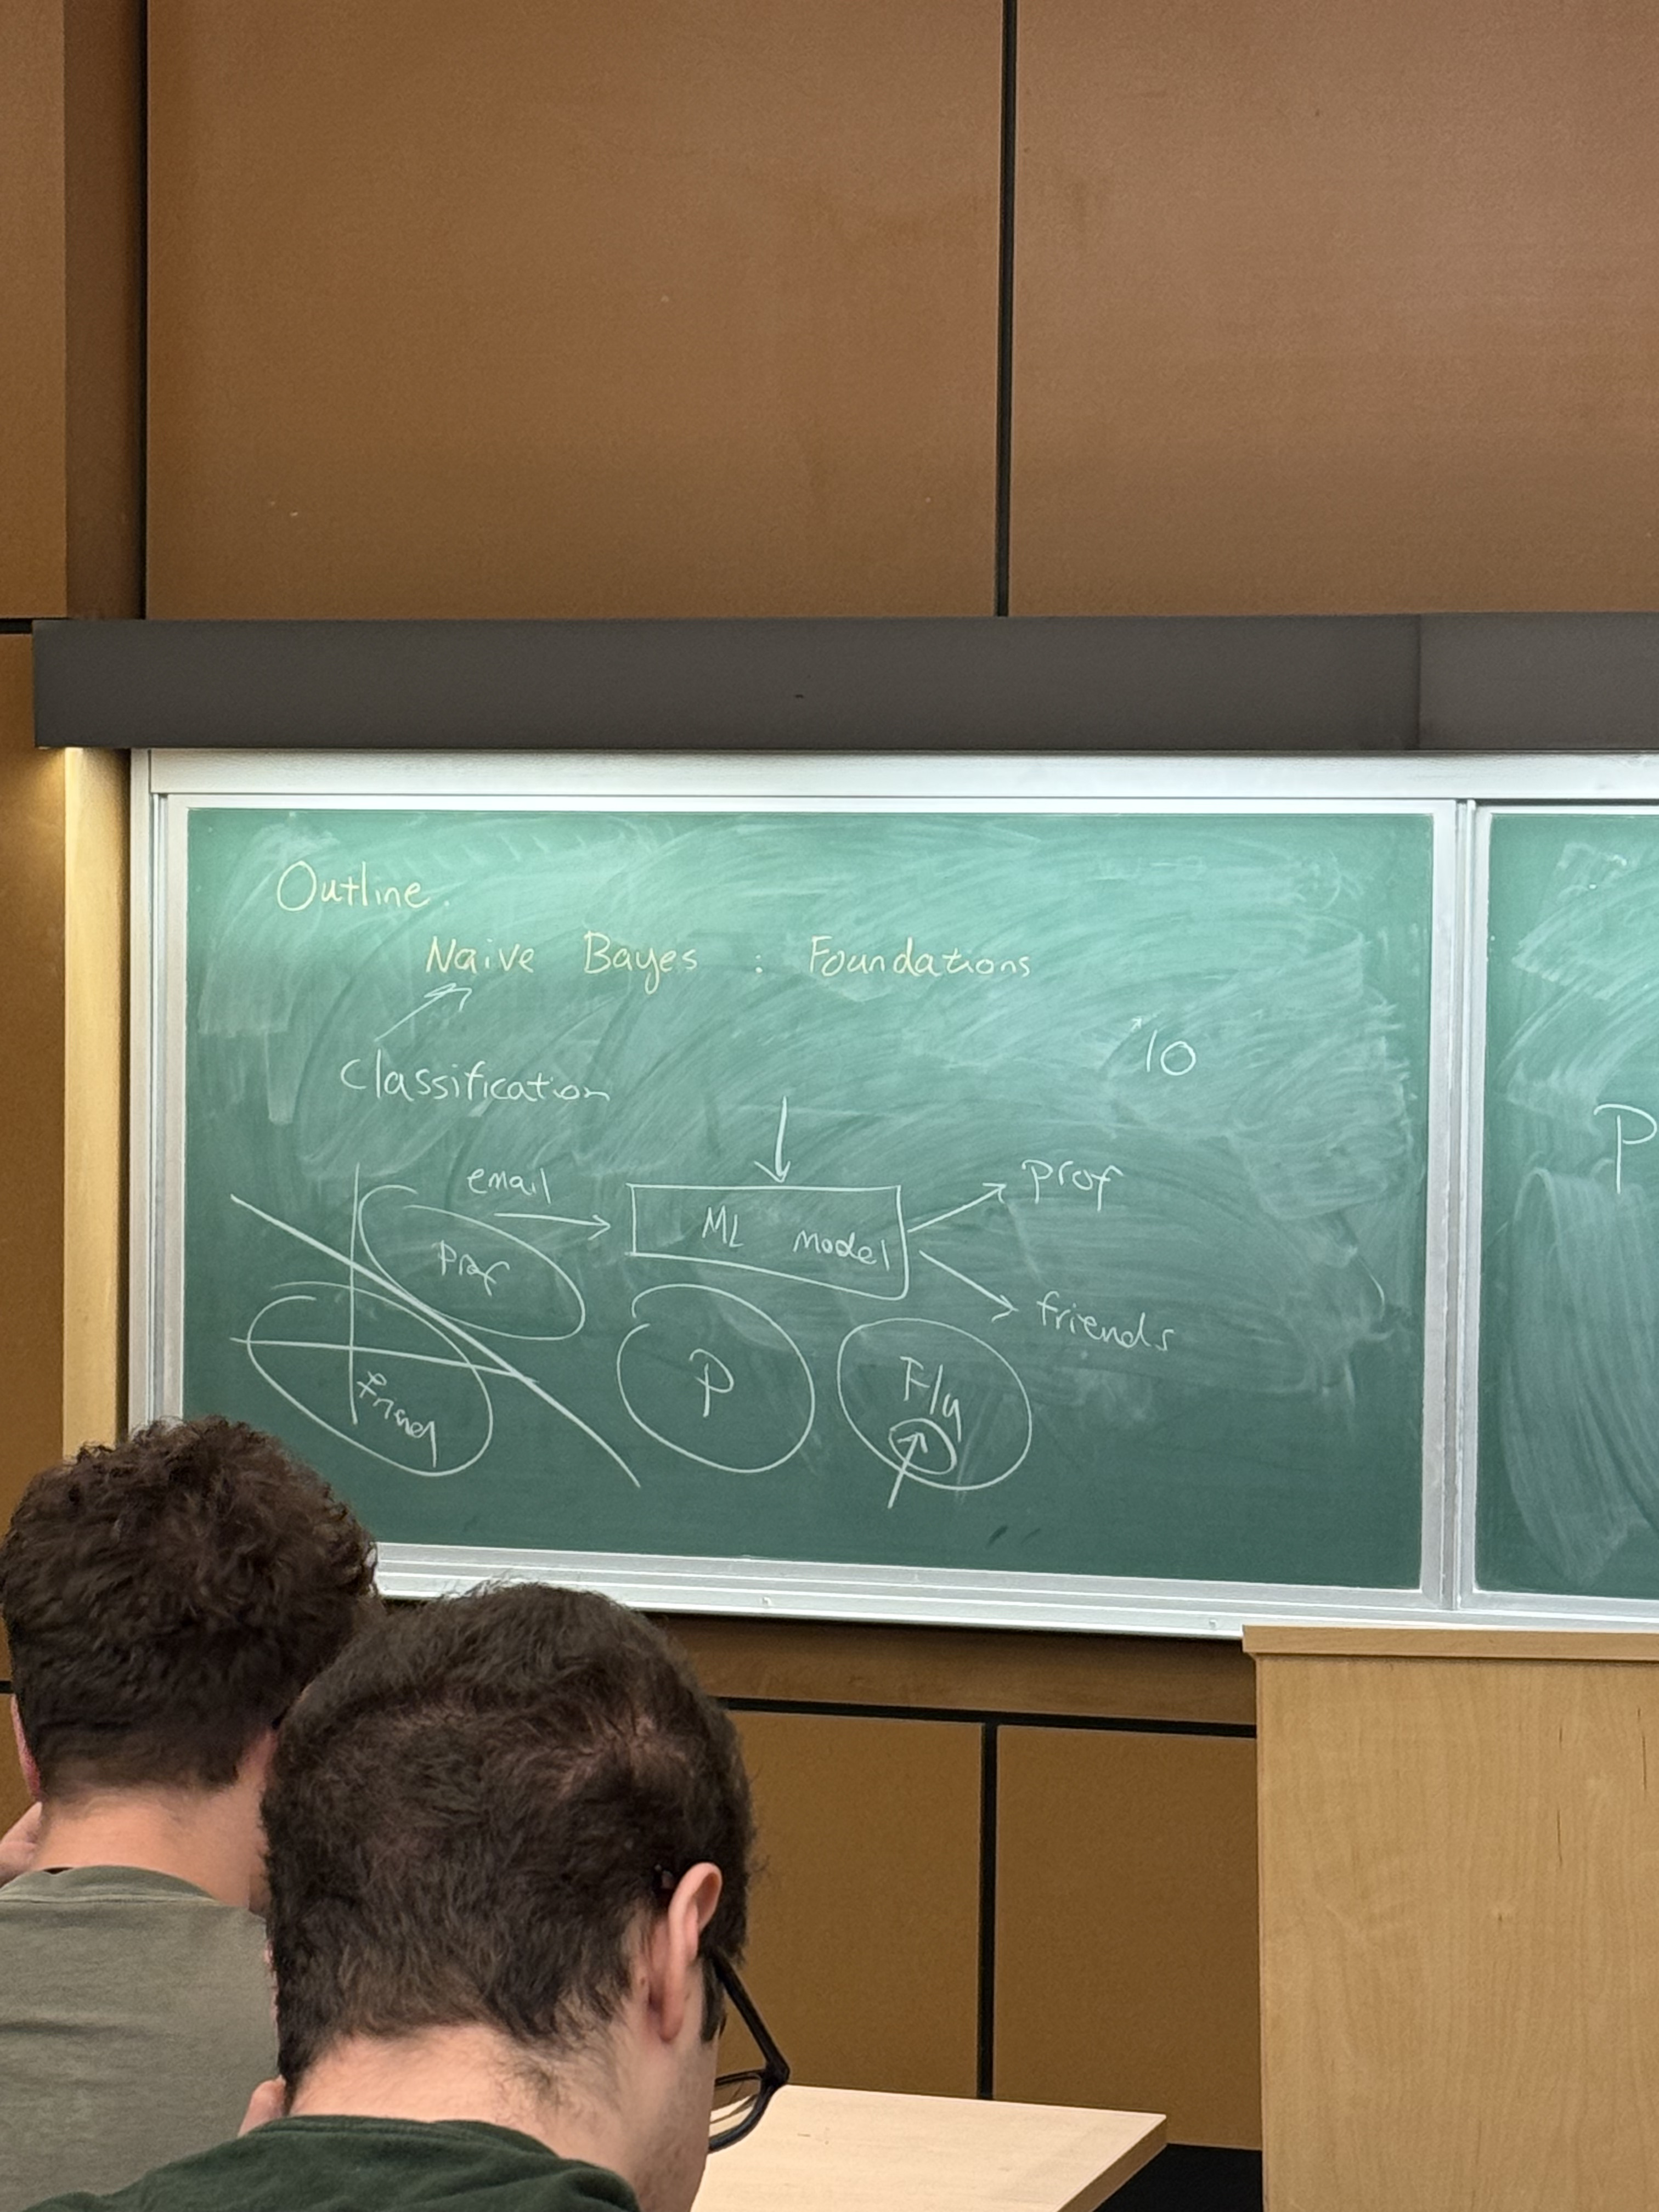 Outline.
Naive Bayes : Foundations
Classification
10
email
ML model
prof
friends
Prof
friend
P
P